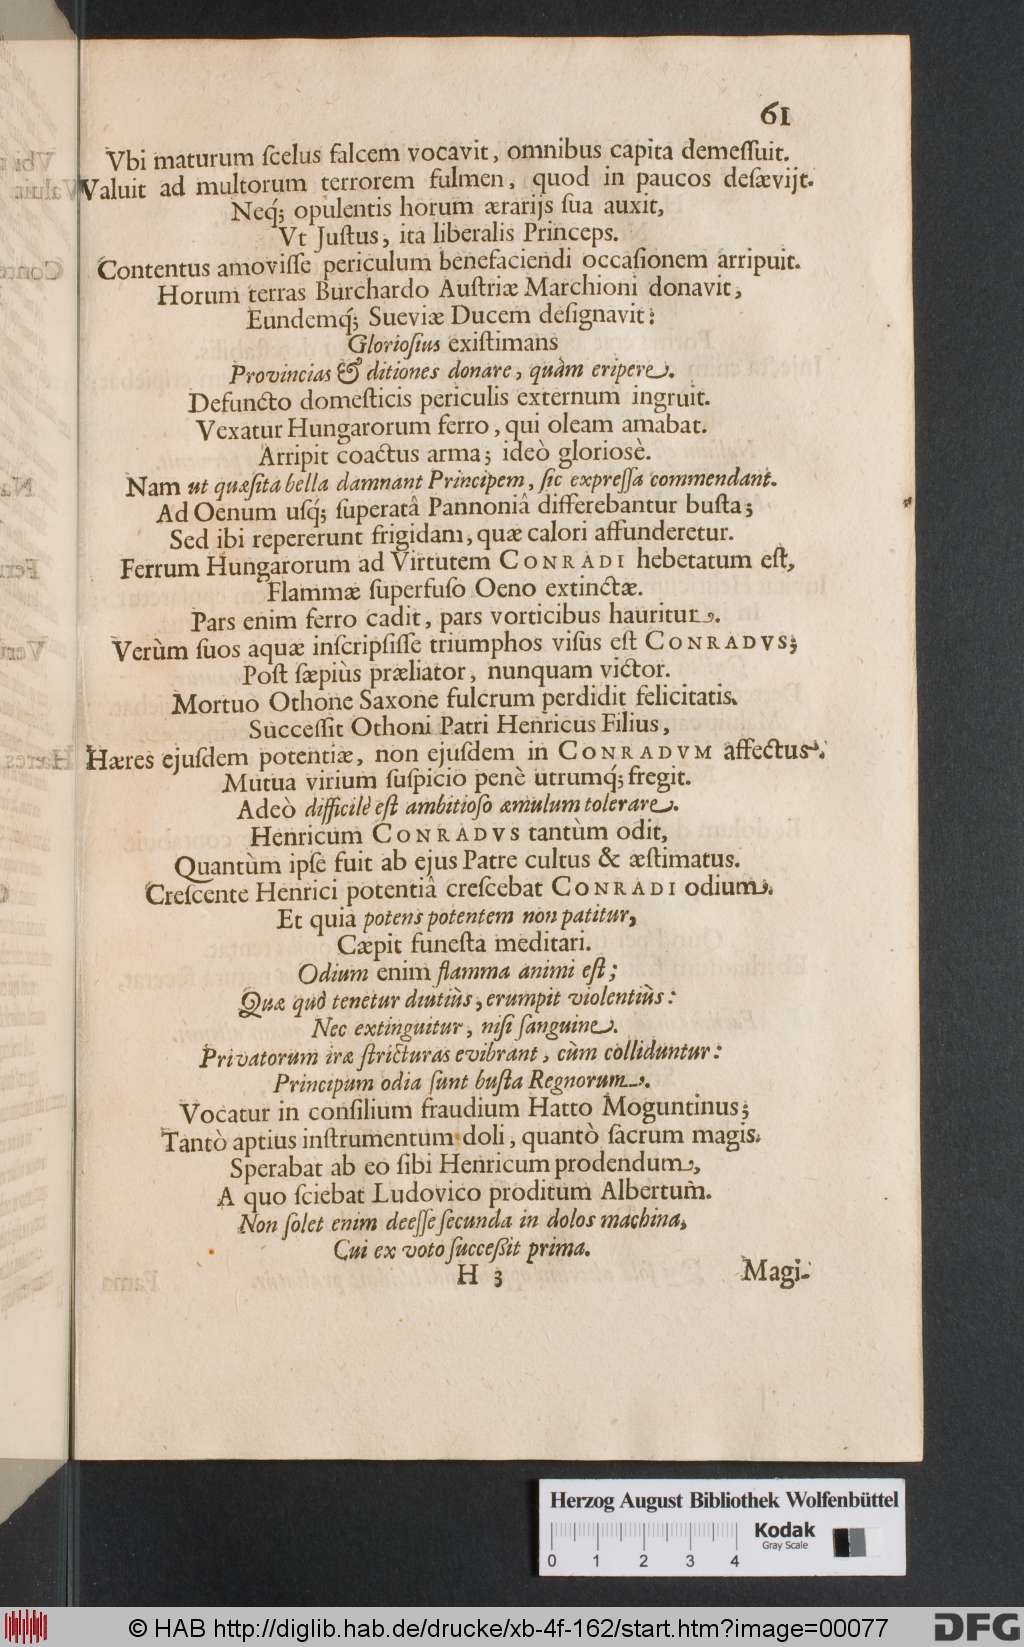 61
Vbi maturum ſcelus falcem vocavit, omnibus capita demeſſuit.
Valuit ad multorum terrorem fulmen, quod in paucos deſævijt.
Neq́; opulentis horum ærarijs ſua auxit,
Vt Juſtus, ita liberalis Princeps.
Contentus amoviſſe periculum benefaciendi occaſionem arripuit.
Horum terras Burchardo Auſtriæ Marchioni donavit,
Eundemq́; Sueviæ Ducem deſignavit:
Glorioſius exiſtimans
Provincias & ditiones donare, quàm eripere.
Defuncto domeſticis periculis externum ingruit.
Vexatur Hungarorum ferro, qui oleam amabat.
Arripit coactus arma; ideò glorioſè.
Nam ut quæſita bella damnant Principem, ſic expreſſa commendant.
Ad Oenum uſq́; ſuperatâ Pannoniâ differebantur buſta;
Sed ibi repererunt frigidam, quæ calori affunderetur.
Ferrum Hungarorum ad Virtutem CONRADI hebetatum eſt,
Flammæ ſuperfuſo Oeno extinctæ.
Pars enim ferro cadit, pars vorticibus hauritur.
Verùm ſuos aquæ inſcripſiſſe triumphos viſus eſt CONRADVS;
Poſt ſæpiùs præliator, nunquam victor.
Mortuo Othone Saxone fulcrum perdidit felicitatis.
Succeſſit Othoni Patri Henricus Filius,
Hæres ejuſdem potentiæ, non ejuſdem in CONRADVM affectus.
Mutua virium ſuſpicio penè utrumq́; fregit.
Adeò difficilè eſt ambitioſo æmulum tolerare.
Henricum CONRADVS tantùm odit,
Quantùm ipſe fuit ab ejus Patre cultus & æſtimatus.
Creſcente Henrici potentiâ creſcebat CONRADI odium.
Et quia potens potentem non patitur,
Cæpit funeſta meditari.
Odium enim flamma animi eſt;
Quæ quò tenetur diutiùs, erumpit violentiùs:
Nec extinguitur, niſi ſanguine.
Privatorum iræ ſtricturas evibrant, cùm colliduntur:
Principum odia ſunt buſta Regnorum.
Vocatur in conſilium fraudium Hatto Moguntinus;
Tantò aptius inſtrumentum doli, quantò ſacrum magis.
Sperabat ab eo ſibi Henricum prodendum,
A quo ſciebat Ludovico proditum Albertum.
Non ſolet enim deeſſe ſecunda in dolos machina,
Cui ex voto ſucceßit prima.
H 3
Magi-
Herzog August Bibliothek Wolfenbüttel
0 1 2 3 4
Kodak
Gray Scale
© HAB http://diglib.hab.de/drucke/xb-4f-162/start.htm?image=00077
DFG